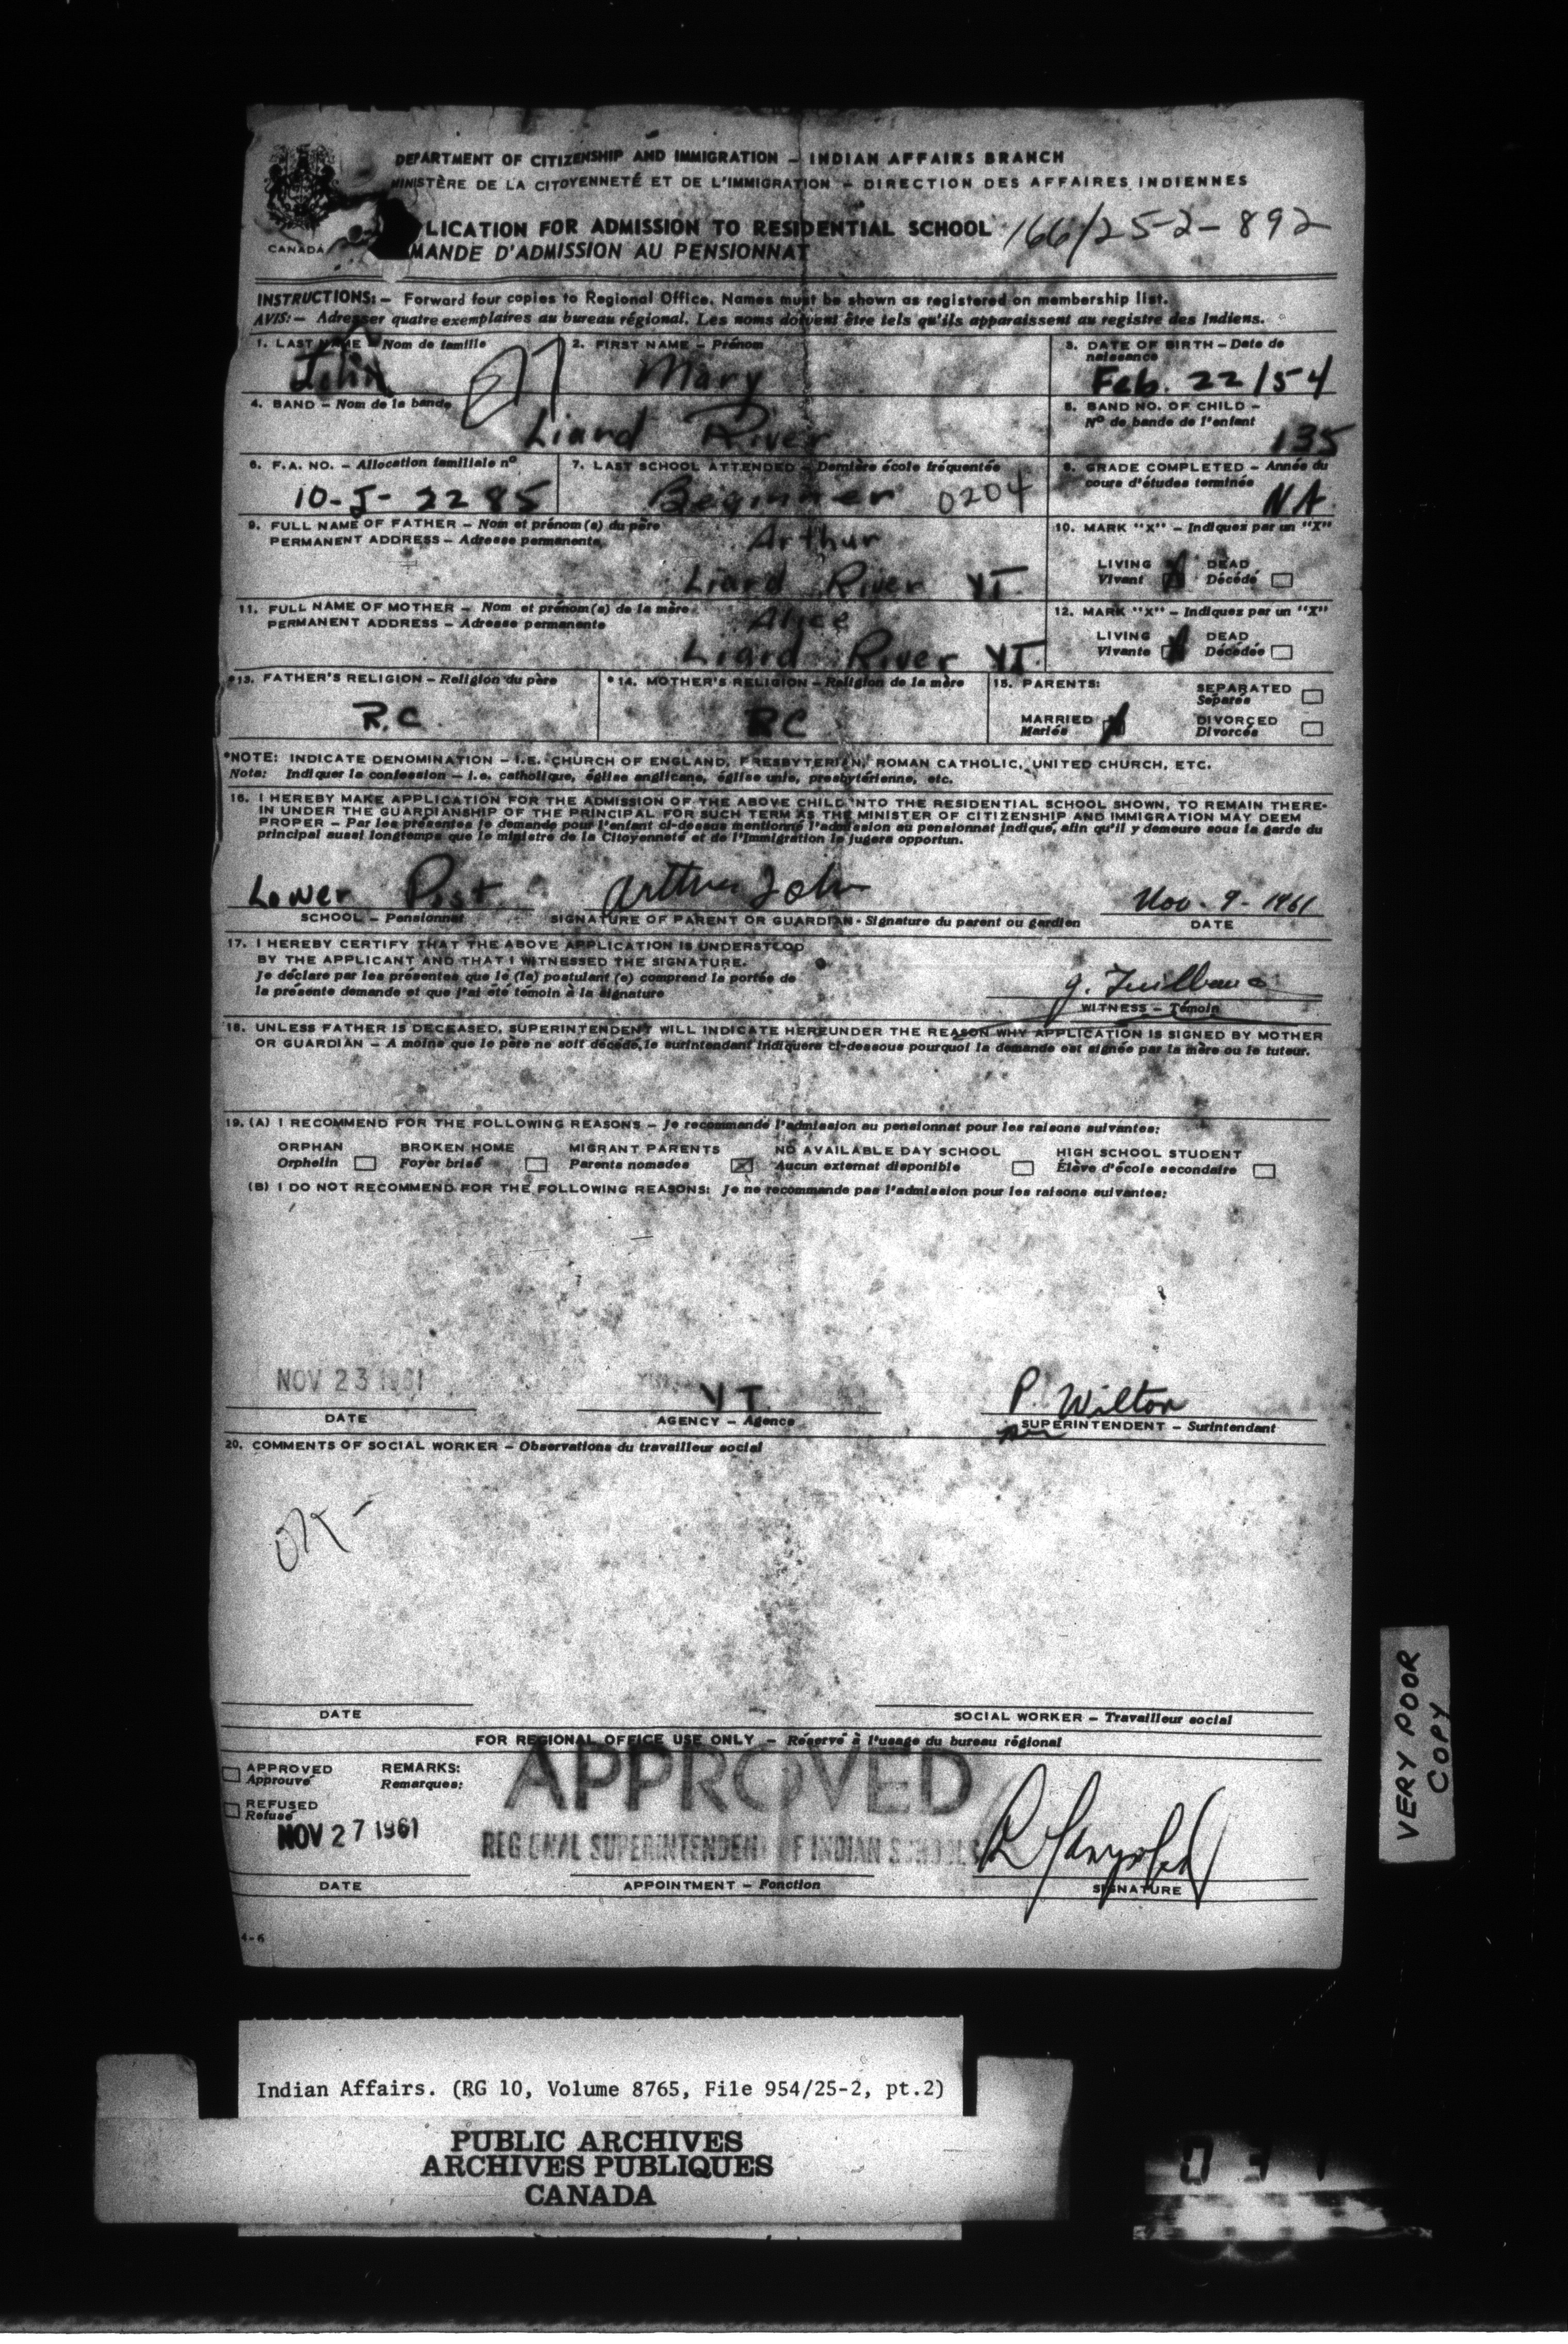 DEPARTMENT OF CITIZENSHIP AND IMMIGRATION – INDIAN AFFAIRS BRANCH
MINISTÈRE DE LA CITOYENNETÉ ET DE L'IMMIGRATION – DIRECTION DES AFFAIRES INDIENNES
LICATION FOR ADMISSION TO RESIDENTIAL SCHOOL 166/25-2-892
MANDE D'ADMISSION AU PENSIONNAT
CANADA
INSTRUCTIONS: – Forward four copies to Regional Office. Names must be shown as registered on membership list.
AVIS: – Adresser quatre exemplaires au bureau régional. Les noms doivent être tels qu'ils apparaissent au registre des Indiens.
1. LAST NAME – Nom de famille 2. FIRST NAME – Prénom 3. DATE OF BIRTH – Date de naissance
John Mary Feb. 22/54
4. BAND – Nom de la bande 5. BAND NO. OF CHILD – Nº de bande de l'enfant
Liard River 135
6. F.A. NO. – Allocation familiale nº 7. LAST SCHOOL ATTENDED – Dernière école fréquentée 8. GRADE COMPLETED – Année du cours d'études terminée
10-J-2285 Beginner 0204 NA
9. FULL NAME OF FATHER – Nom et prénom(s) du père 10. MARK "X" – Indiquez par un "X"
PERMANENT ADDRESS – Adresse permanente
Arthur
Liard River YT. LIVING Vivant DEAD Décédé
11. FULL NAME OF MOTHER – Nom et prénom(s) de la mère 12. MARK "X" – Indiquez par un "X"
PERMANENT ADDRESS – Adresse permanente
Alice
Liard River YT. LIVING Vivante DEAD Décédée
*13. FATHER'S RELIGION – Religion du père *14. MOTHER'S RELIGION – Religion de la mère 15. PARENTS: SEPARATED Séparés
R.C. RC MARRIED Mariés DIVORCED Divorcés
*NOTE: INDICATE DENOMINATION – I.E. CHURCH OF ENGLAND, PRESBYTERIAN, ROMAN CATHOLIC, UNITED CHURCH, ETC.
Note: Indiquer la confession – i.e. catholique, église anglicane, église unie, presbytérienne, etc.
16. I HEREBY MAKE APPLICATION FOR THE ADMISSION OF THE ABOVE CHILD INTO THE RESIDENTIAL SCHOOL SHOWN, TO REMAIN THERE-
IN UNDER THE GUARDIANSHIP OF THE PRINCIPAL FOR SUCH TERM AS THE MINISTER OF CITIZENSHIP AND IMMIGRATION MAY DEEM
PROPER – Par les présentes je demande pour l'enfant ci-dessus mentionné l'admission au pensionnat indiqué, afin qu'il y demeure sous la garde du
principal aussi longtemps que le ministre de la Citoyenneté et de l'Immigration le jugera opportun.
Lower Post Arthur John Nov. 9 - 1961
SCHOOL – Pensionnat SIGNATURE OF PARENT OR GUARDIAN - Signature du parent ou gardien DATE
17. I HEREBY CERTIFY THAT THE ABOVE APPLICATION IS UNDERSTOOD
BY THE APPLICANT AND THAT I WITNESSED THE SIGNATURE.
Je déclare par les présentes que le (la) postulant (e) comprend la portée de
la présente demande et que j'ai été témoin à la signature
WITNESS – Témoin
18. UNLESS FATHER IS DECEASED, SUPERINTENDENT WILL INDICATE HEREUNDER THE REASON WHY APPLICATION IS SIGNED BY MOTHER
OR GUARDIAN – A moins que le père ne soit décédé, le surintendant indiquera ci-dessous pourquoi la demande est signée par la mère ou le tuteur.
19. (A) I RECOMMEND FOR THE FOLLOWING REASONS – Je recommande l'admission au pensionnat pour les raisons suivantes:
ORPHAN BROKEN HOME MIGRANT PARENTS NO AVAILABLE DAY SCHOOL HIGH SCHOOL STUDENT
Orphelin Foyer brisé Parents nomades Aucun externat disponible Élève d'école secondaire
(B) I DO NOT RECOMMEND FOR THE FOLLOWING REASONS: Je ne recommande pas l'admission pour les raisons suivantes:
NOV 23 1961 YT. P. Wilton
DATE AGENCY – Agence SUPERINTENDENT – Surintendant
20. COMMENTS OF SOCIAL WORKER – Observations du travailleur social
DATE SOCIAL WORKER – Travailleur social
FOR REGIONAL OFFICE USE ONLY – Réservé à l'usage du bureau régional
APPROVED REMARKS: APPROVED
Approuvé Remarques:
REFUSED
Refusé
NOV 27 1961 REGIONAL SUPERINTENDENT OF INDIAN SCHOOLS
DATE APPOINTMENT – Fonction SIGNATURE
4-6
VERY POOR
COPY
Indian Affairs. (RG 10, Volume 8765, File 954/25-2, pt.2)
PUBLIC ARCHIVES
ARCHIVES PUBLIQUES
CANADA